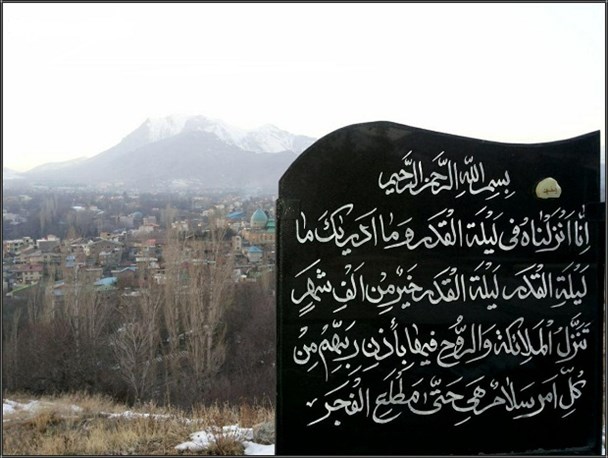 بِسْمِ اللّٰهِ الرَّحْمٰنِ الرَّحیٖمِ
اِنّٰا اَنْزَلْنٰاهُ فی لَیْلَةِ الْقَدْرِ وَ مٰا اَدْریٰكَ مٰا
لَیْلَةُ الْقَدْرِ لَیْلَةُ الْقَدْرِ خَیْرٌ مِنْ اَلْفِ شَهْرٍ
تَنَزَّلُ الْمَلائِكَةُ وَالرُّوحُ فیهٰا بِأِذْنِ رَبِّهُمْ مِنْ
كُلِّ اَمْرٍ سَلامٌ هِیَ حَتّیٰ مَطْلَعِ الْفَجْرِ